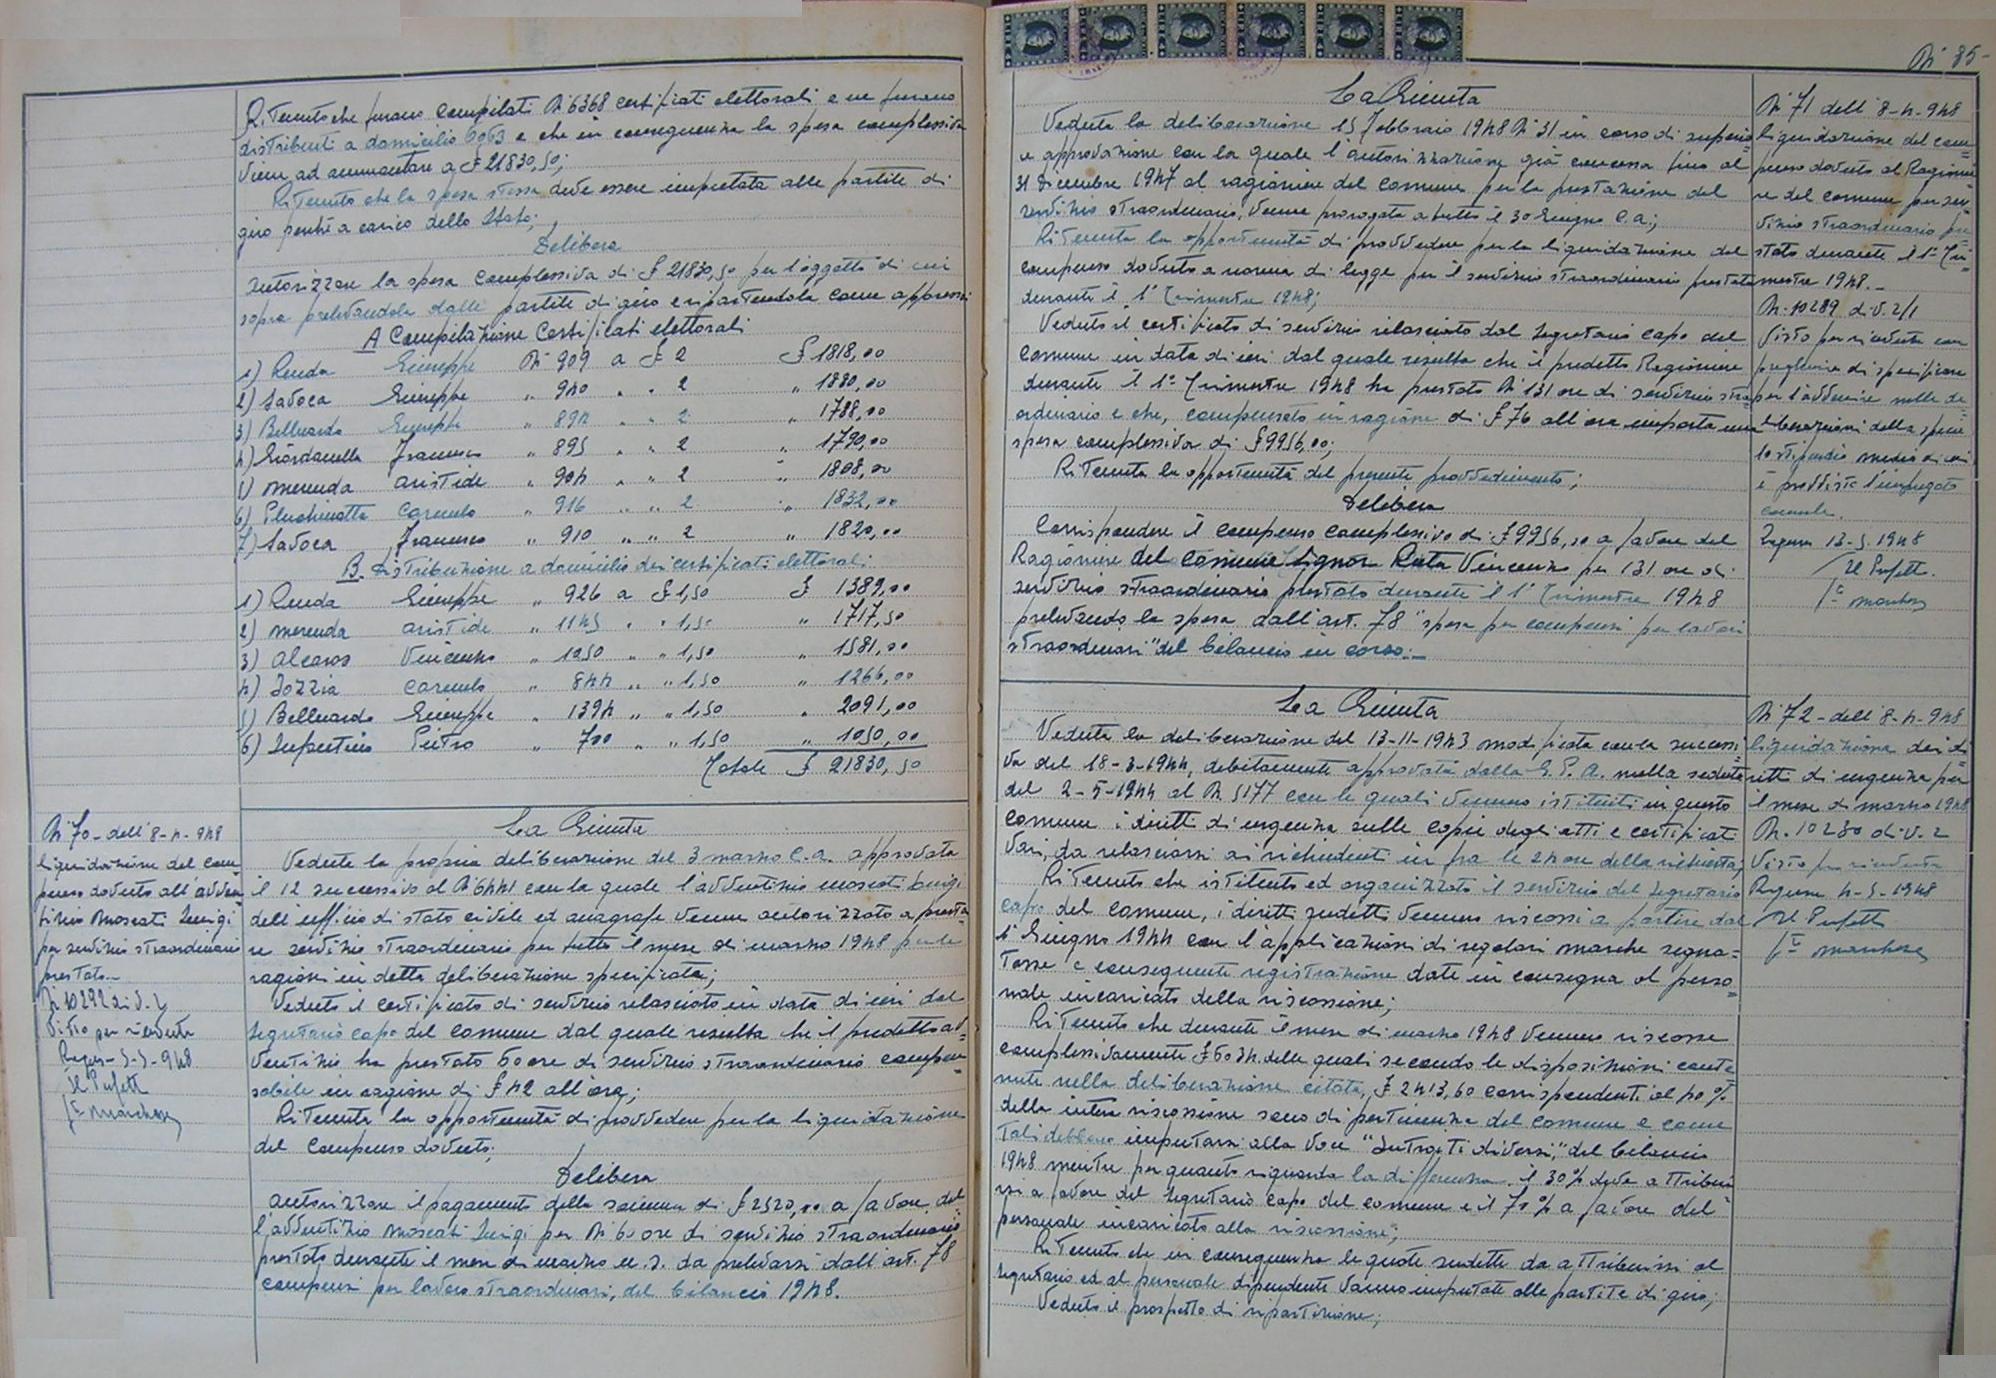 Ritenuto che furono compilati N 6368 certificati elettorali e ne furono
distribuiti a domicilio 6063 e che in conseguenza la spesa complessiva
viene ad ammontare a £ 21830,50;
Ritenuto che la spesa stessa deve essere imputata alle partite di
giro perché a carico dello Stato;
Delibera
autorizzare la spesa complessiva di £ 21830,50 per l'oggetto di cui
sopra prelevandola dalle partite di giro e ripartendola come appresso
A Compilazione Certificati elettorali
1) Renda Giuseppe N 909 a £ 2 £ 1818,00
2) Savoca Giuseppe " 940 " " 2 " 1880,00
3) Belluardo Giuseppe " 894 " " 2 " 1788,00
4) Giordanella Francesco " 895 " " 2 " 1790,00
5) Merenda Aristide " 904 " " 2 " 1808,00
6) Pluchinotta Carmelo " 916 " " 2 " 1832,00
7) Savoca Francesco " 910 " " 2 " 1820,00
B. Distribuzione a domicilio dei certificati elettorali
1) Renda Giuseppe " 926 a £ 1,50 £ 1389,00
2) Merenda Aristide " 1145 " " 1,50 " 1717,50
3) Vincenzo " 1050 " " 1,50 " 1581,00
4) Iozzia Carmelo " 844 " " 1,50 " 1266,00
5) Belluardo Giuseppe " 1394 " " 1,50 " 2091,00
6) Pietro " 700 " " 1,50 " 1050,00
Totale £ 21830,50
N 70 - dell' 8-4-948
liquidazione del com
penso dovuto all'avven
tizio Moscati Luigi
per servizio straordinario
prestato.
N 10292 di V. 2
Visto per ricevuta
Ragusa - 5-5-948
Il Prefetto
La Giunta
Vedute la propria deliberazione del 3 marzo c.a. approvata
il 12 successivo al N 6441 con la quale l'avventizio Moscati Luigi
dell'ufficio di stato civile ed anagrafe venne autorizzato a presta
re servizio straordinario per tutto il mese di marzo 1948 per le
ragioni in detta deliberazione specificata;
Veduto il certificato di servizio rilasciato in data di ieri dal
Segretario capo del comune dal quale risulta che il predetto av=
ventizio ha prestato 60 ore di servizio straordinario compen=
sabile in ragione di £ 42 all'ora;
Ritenuta la opportunità di provvedere per la liquidazione
del compenso dovuto;
Delibera
autorizzare il pagamento della somma di £ 2520,00 a favore del
l'avventizio Moscati Luigi per N 60 ore di servizio straordinario
prestato durante il mese di marzo u.s. da prelevarsi dall'art. 78
compensi per lavoro straordinari, del bilancio 1948.
N 85-
La Giunta
Veduta la deliberazione 15 Febbraio 1948 N 31 in corso di superio
re approvazione con la quale l'autorizzazione già concessa fino al
31 Dicembre 1947 al ragioniere del comune per la prestazione del
servizio straordinario, venne prorogata a tutto il 30 Giugno c.a.;
Ritenuta la opportunità di provvedere per la liquidazione del
compenso dovuto a norma di legge per il servizio straordinario prestato
durante il 1° Trimestre 1948;
Veduto il certificato di servizio rilasciato dal Segretario capo del
Comune in data di ieri dal quale risulta che il predetto Ragioniere
durante il 1° Trimestre 1948 ha prestato N 131 ore di servizio stra
ordinario e che, compensato in ragione di £ 76 all'ora importa una
spesa complessiva di £ 9956,00;
Ritenuta la opportunità del presente provvedimento;
Delibera
Corrispondere il compenso complessivo di £ 9956,00 a favore del
Ragioniere del Comune Signor Rota Vincenzo per 131 ore di
servizio straordinario prestato durante il 1° Trimestre 1948
prelevando la spesa dall'art. 78 "spesa per compensi per lavori
straordinari" del bilancio in corso.
N 71 dell' 8-4-948
liquidazione del com=
penso dovuto al Ragionie
re del comune per ser
vizio straordinario pre
stato durante il 1° Tri=
mestre 1948.
N. 10289 di V. 2/1
Visto per ricevuta con
preghiera di specificare
per l'avvenire nelle de
liberazioni della specie
lo stipendio medio di cui
è provvisto l'impiegato
comunale.
Ragusa 13-5-1948
Il Prefetto.
La Giunta
Veduta la deliberazione del 13-11-1943 modificata con la successi
va del 18-3-1944, debitamente approvata dalla G.P.A. nella seduta
del 2-5-1944 al N 5177 con le quali vennero istituiti in questo
Comune i diritti di urgenza sulle copie degli atti e certificati
vari, da rilasciarsi ai richiedenti in fra le 24 ore della richiesta;
Ritenuto che istituito ed organizzato il servizio del Segretario
capo del Comune, i diritti suddetti vennero riscossi a partire dal
1° Giugno 1944 con l'applicazioni di regolari marche segna=
tasse e conseguente registrazione date in consegna al perso=
nale incaricato della riscossione;
Ritenuto che durante il mese di marzo 1948 vennero riscosse
complessivamente £ 6034 delle quali secondo le disposizioni conte
nute nella deliberazione citata, £ 2413,60 corrispondenti al 40 %
della intera riscossione sono di pertinenza del Comune e come
tali debbono imputarsi alla voce "Introiti diversi," del bilancio
1948 mentre per quanto riguarda la differenza il 30% deve attribuir
si a favore del Segretario capo del comune e il 70% a favore del
personale incaricato alla riscossione;
Ritenuto che in conseguenza le quote suddette da attribuirsi al
Segretario ed al personale dipendente vanno imputate alle partite di giro;
Veduto il prospetto di ripartizione;
N 72 - dell' 8-4-948
liquidazione dei di
ritti di urgenza per
il mese di marzo 1948
N. 10280 di V. 2
Visto per ricevuta
Ragusa 4-5-1948
Il Prefetto